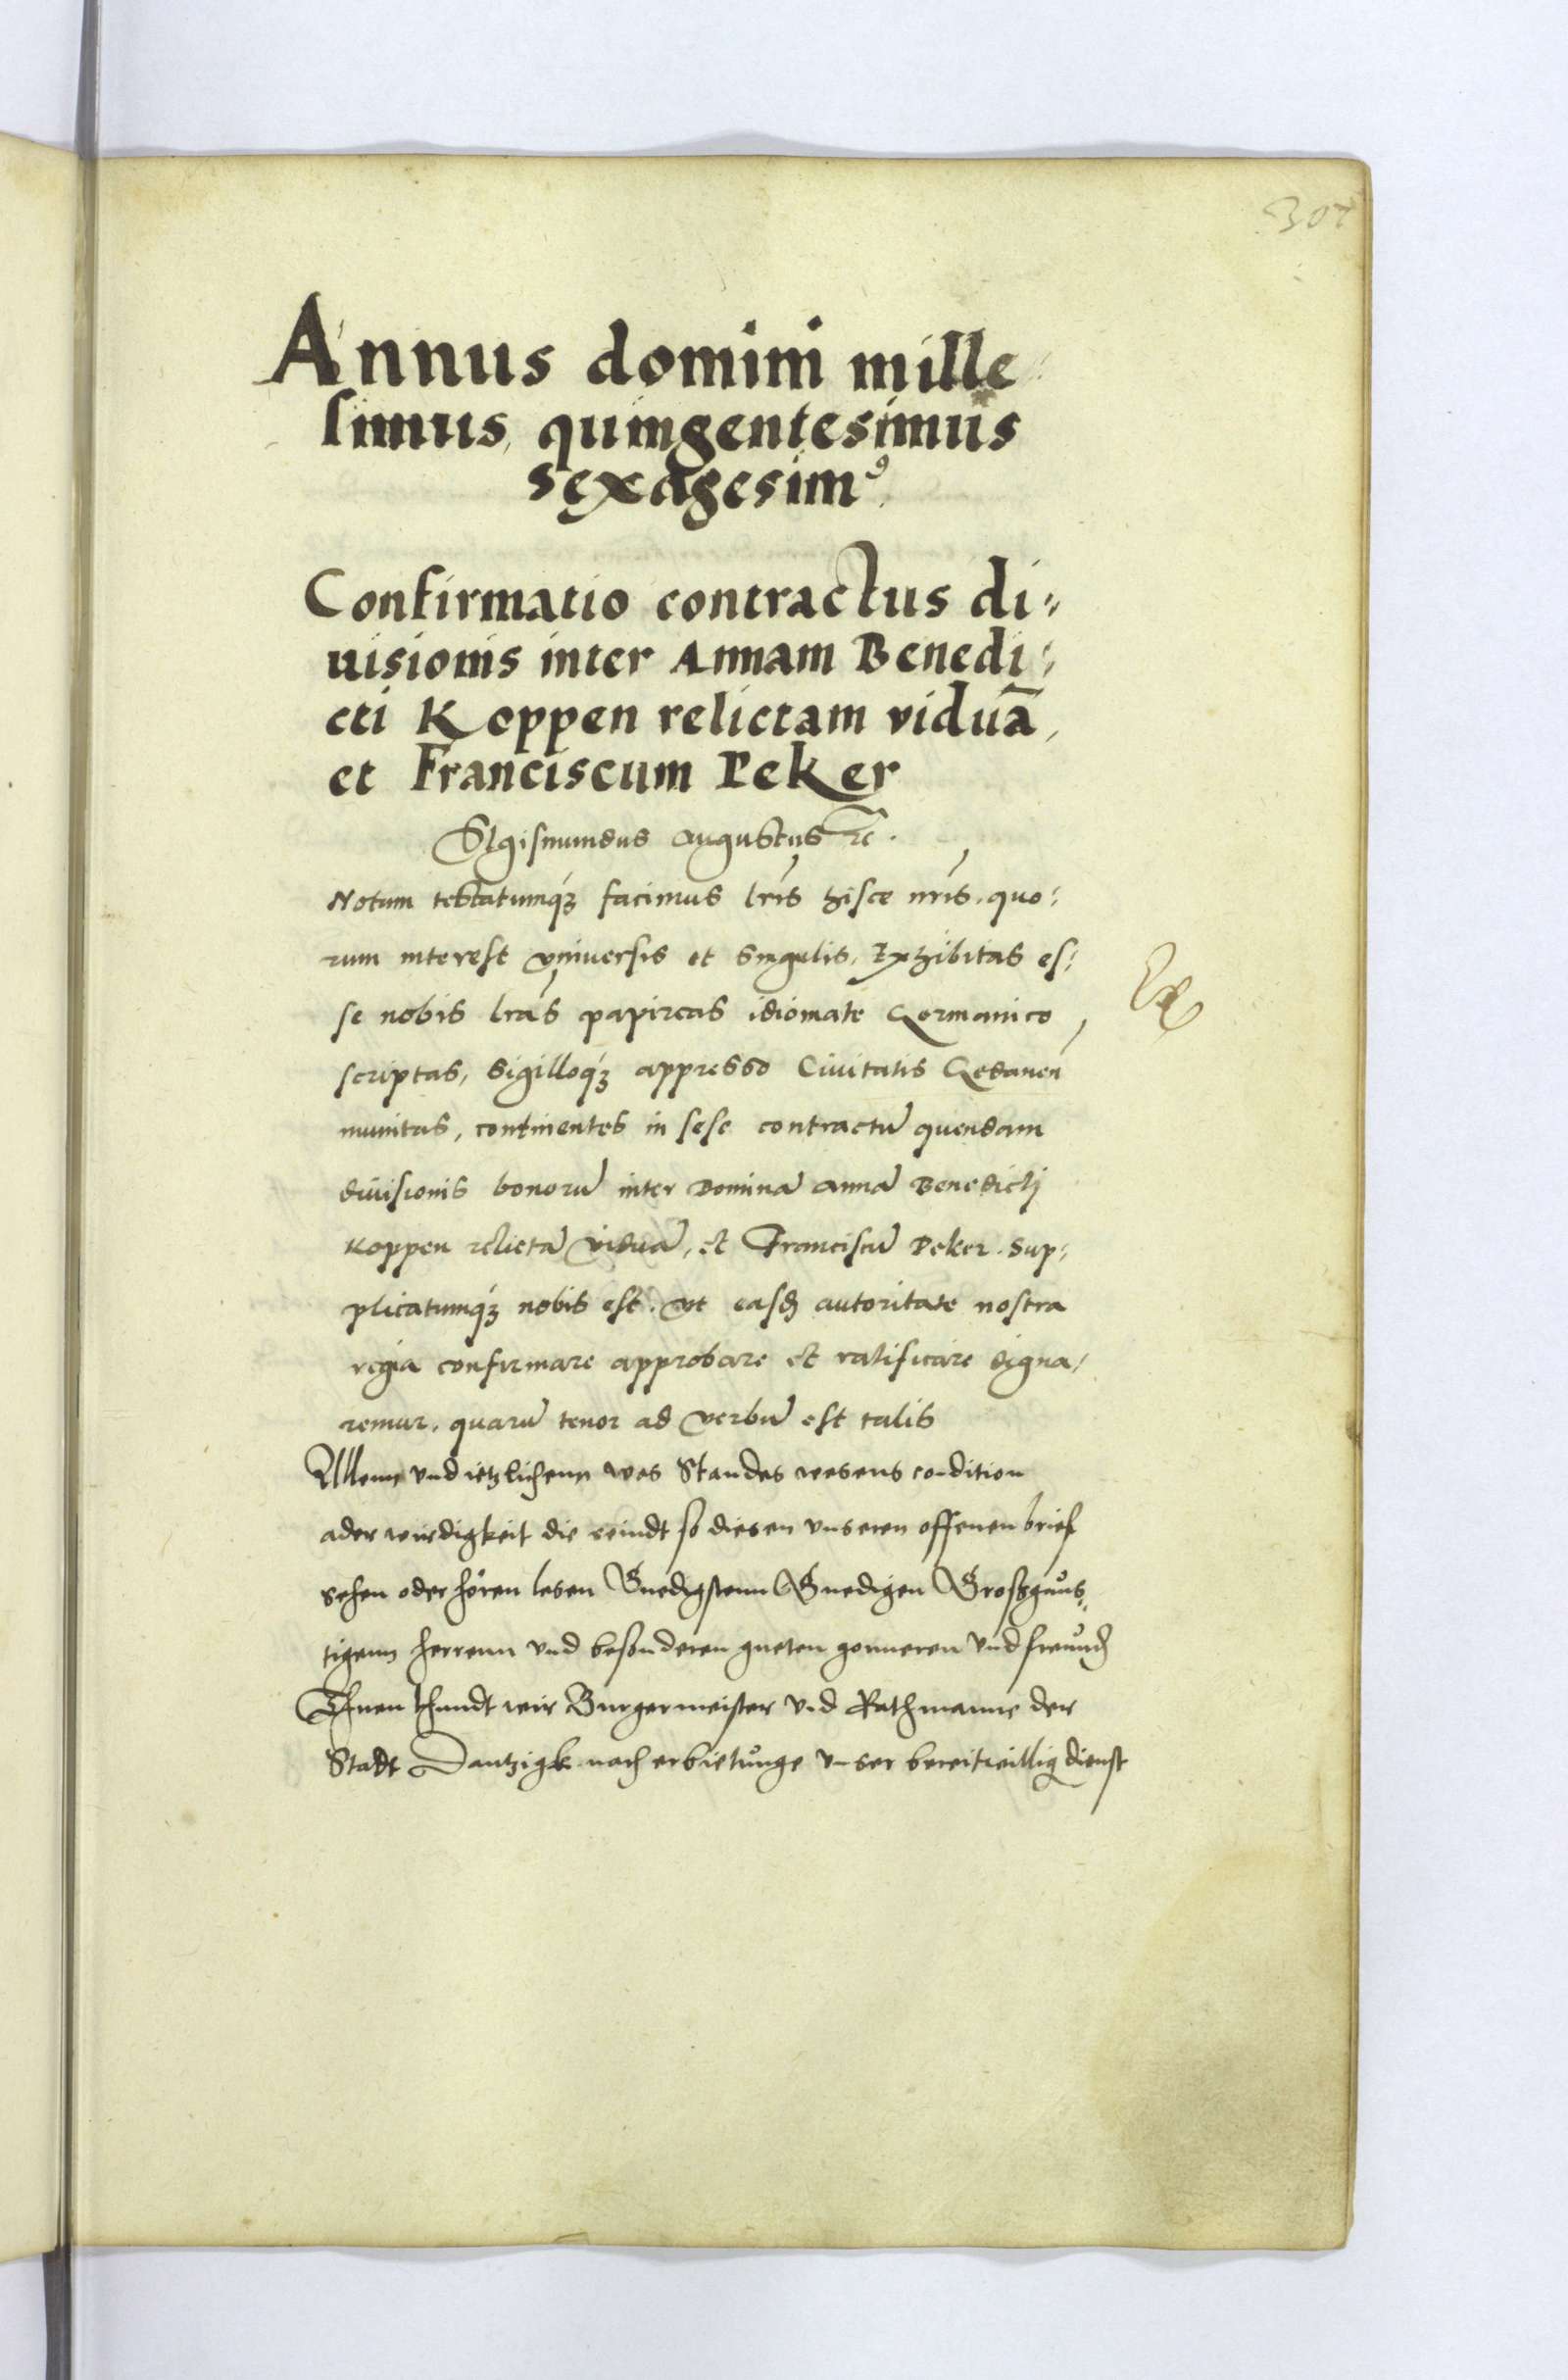 307
Annus domini mille
simus quingentesimus
sexagesim⁹
Confirmatio contractus di:
uisionis inter Annam Benedi:
cti Koppen relictam viduā,
et Franciscum Peker
Sigismundus Augustus ꝛc.
Notum testatumqꝫ facimus lris hisce nris. quo:
rum interest vniuersis et singulis, Exhibitas es:
se nobis lras papireas idiomate Germanico
scriptas, sigilloqꝫ appresso Ciuitatis Gedanen̄
munitas, continentes in sese contractū quendam
diuisionis bonorū inter Dominā Annā Benedicti
Koppen relictā viduā, et Franciscū Peker. Sup:
plicatumqꝫ nobis est. vt easd autoritate nostra
regia confirmare approbare et ratificare digna/
remur. quarū tenor ad verbū est talis
Allenn vnd ietzlichenn was Standes wesens condition
ader wirdigkeit die seindt so diesen vnseren offenen brief
sehen oder hören lesen Gnedigstenn Gnedigen Großgůns:
tigenn herrenn vnd besonderen gueten gonneren vnd freund
Thuen khundt wir Burgermeister vnd Rathmanne der
Stadt Dantzigk nach erbietůnge vnser bereitwillig dienst